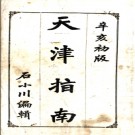 辛亥初版
天津指南
石小川編輯